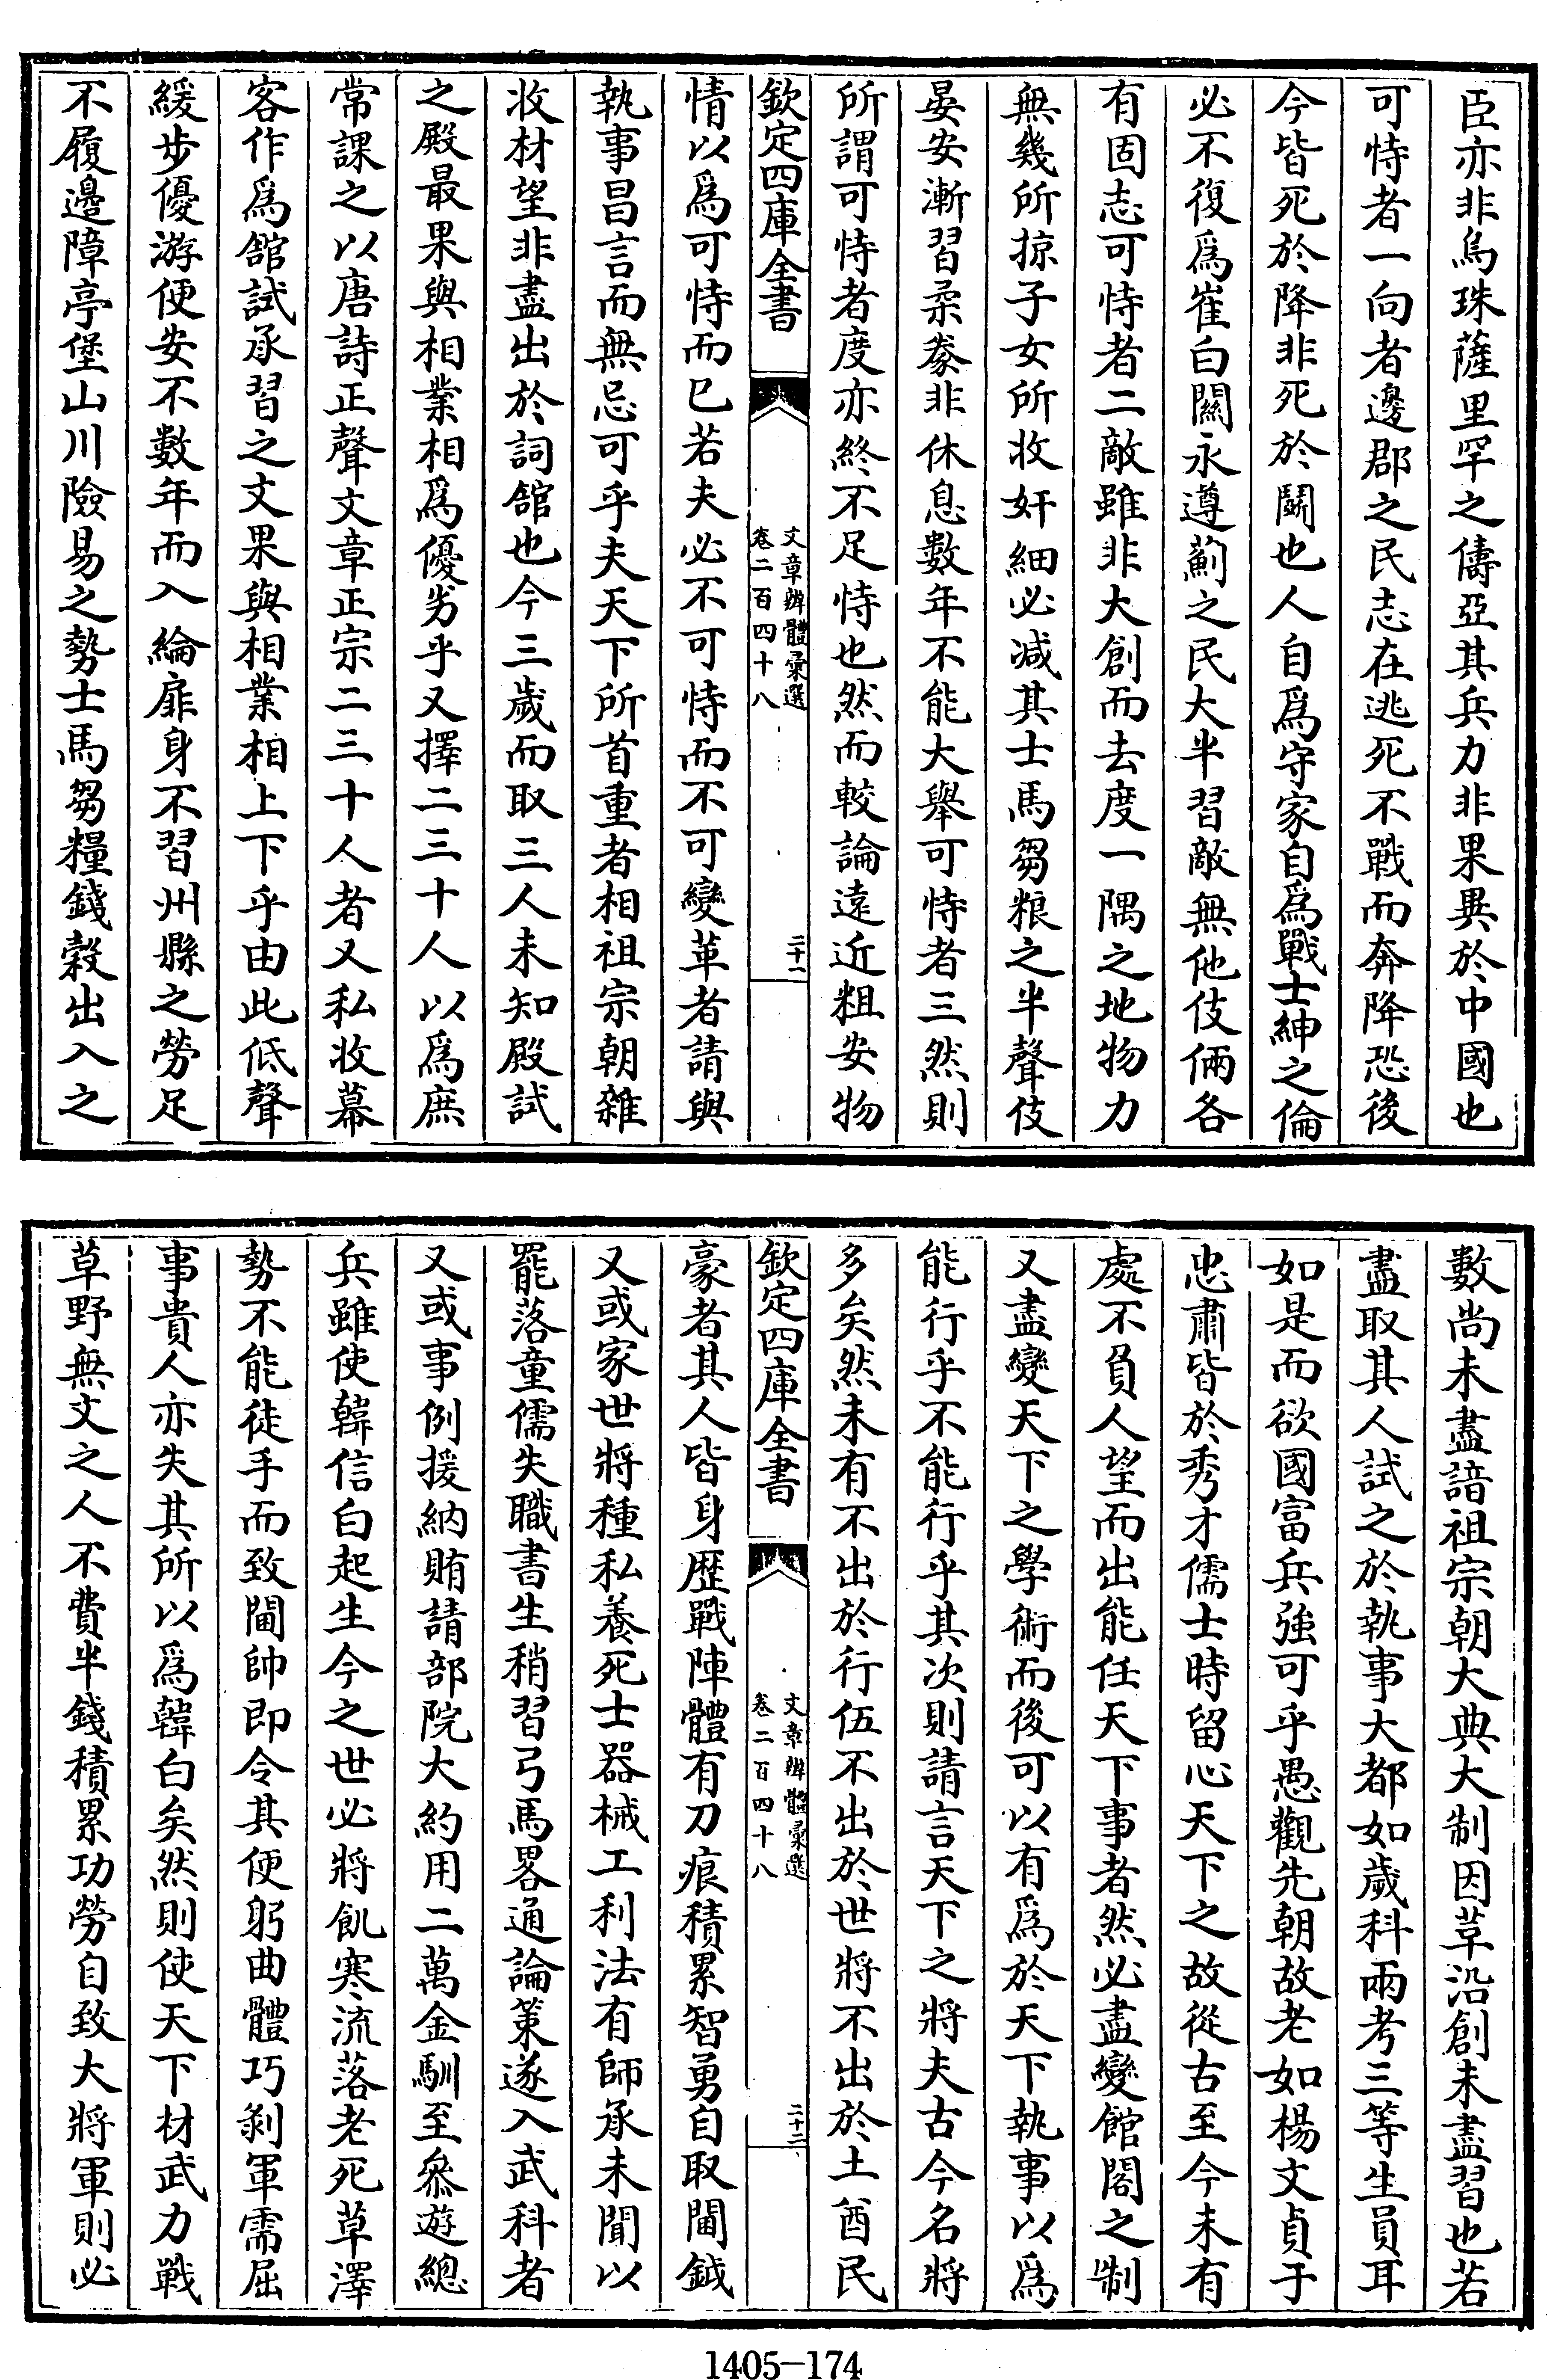 臣亦非烏珠薩里罕之儔亞其兵力非果異於中國也
可恃者一向者邊郡之民志在逃死不戰而奔降恐後
今皆死於降非死於鬭也人自為守家自為戰士紳之倫
必不復為崔白關永遵薊之民大半習敵無他伎倆各
有固志可恃者二敵雖非大創而去度一隅之地物力
無幾所掠子女所收奸細必減其士馬芻粮之半聲伎
晏安漸習柔豢非休息數年不能大舉可恃者三然則
所謂可恃者度亦終不足恃也然而較論遠近粗安物
欽定四庫全書
文章辨體彙選
卷二百四十八
二十一
情以為可恃而已若夫必不可恃而不可變革者請與
執事昌言而無忌可乎夫天下所首重者相祖宗朝雜
收材望非盡出於詞舘也今三歲而取三人未知殿試
之殿最果與相業相為優劣乎又擇二三十人以為庶
常課之以唐詩正聲文章正宗二三十人者又私收幕
客作為舘試承習之文果與相業相上下乎由此低聲
緩步優游便安不數年而入綸扉身不習州縣之勞足
不履邊障亭堡山川險易之勢士馬芻糧錢穀出入之
數尚未盡諳祖宗朝大典大制因革沿創未盡習也若
盡取其人試之於執事大都如歲科兩考三等生員耳
如是而欲國富兵強可乎愚觀先朝故老如楊文貞于
忠肅皆於秀才儒士時留心天下之故從古至今未有
處不負人望而出能任天下事者然必盡變館閣之制
又盡變天下之學術而後可以有為於天下執事以為
能行乎不能行乎其次則請言天下之將夫古今名將
多矣然未有不出於行伍不出於世將不出於土酋民
欽定四庫全書
文章辨體彙選
卷二百四十八
二十二
豪者其人皆身歷戰陣體有刀痕積累智勇自取閫鉞
又或家世將種私養死士器械工利法有師承未聞以
罷落童儒失職書生稍習弓馬畧通論策遂入武科者
又或事例援納賄請部院大約用二萬金馴至叅遊總
兵雖使韓信白起生今之世必將飢寒流落老死草澤
勢不能徒手而致閫帥即令其便躬曲體巧剝軍需屈
事貴人亦失其所以為韓白矣然則使天下材武力戰
草野無文之人不費半錢積累功勞自致大將軍則必
1405-174